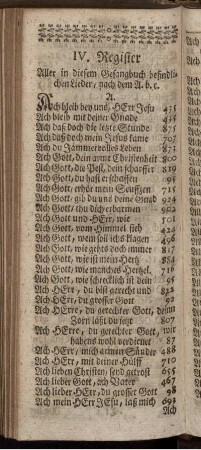 IV. Register
Aller in diesem Gesangbuch befindli-
chen Lieder, nach dem A. b. c.
A.
Ach bleib bey uns, HErr Jesu 435
Ach bleib mit deiner Gnade 435
Ach daß doch die letzte Stunde 875
Ach daß doch mein Jesus käme 707
Ach du Jammervolles Leben 875
Ach Gott, dein arme Christenheit 800
Ach Gott, die Pest, dein scharffer 819
Ach Gott, du hast erschaffen
Ach Gott, erhör mein Seuffzen 715
Ach Gott, gib du uns deine Gnad 924
Ach Gott, thu dich erbarmen 902
Ach Gott und HErr, wie 701
Ach Gott, vom Himmel sieh 424
Ach Gott, wem soll ichs klagen
Ach Gott, wie gehts doch immer 817
Ach Gott, wie ist mein Hertz 854
Ach Gott, wie manches Hertzel. 716
Ach Gott, wie schrecklich ist dein
Ach HErr, du bist gerecht und 822
Ach HErr, du grosser Gott 92
Ach HErre, du gerechter Gott, deinn
Zorn läßt du jetzt 807
Ach HErre, du gerechter Gott, wir
habens wohl verdienet 87
Ach HErr, mich armen Sünder 488
Ach HErr, mit deiner Hülff 710
Ach lieben Christen, seyd getrost 655
Ach lieber Gott, ach Vater 467
Ach lieber HErr, du grosser Gott 98
Ach mein HErr JEsu, laß mich 693
Ach